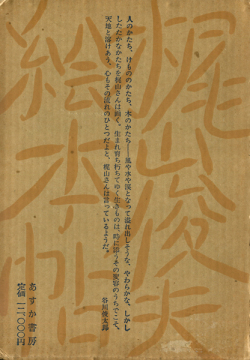 梶山俊夫
絵本帖
人のかたち、けもののかたち、木のかたち——風や水や炎となって溢れ出しそうな、やわらかな、しかし
したたかなかたちを梶山さんは描く。生まれ育ち朽ちてゆく生きものは、時にうその変容のうちでこそ、
天地と溶けあう。心もその流れのひとつだよと、梶山さんは言っているようだ。
谷川俊太郎
あすか書房
定価二、〇〇〇円